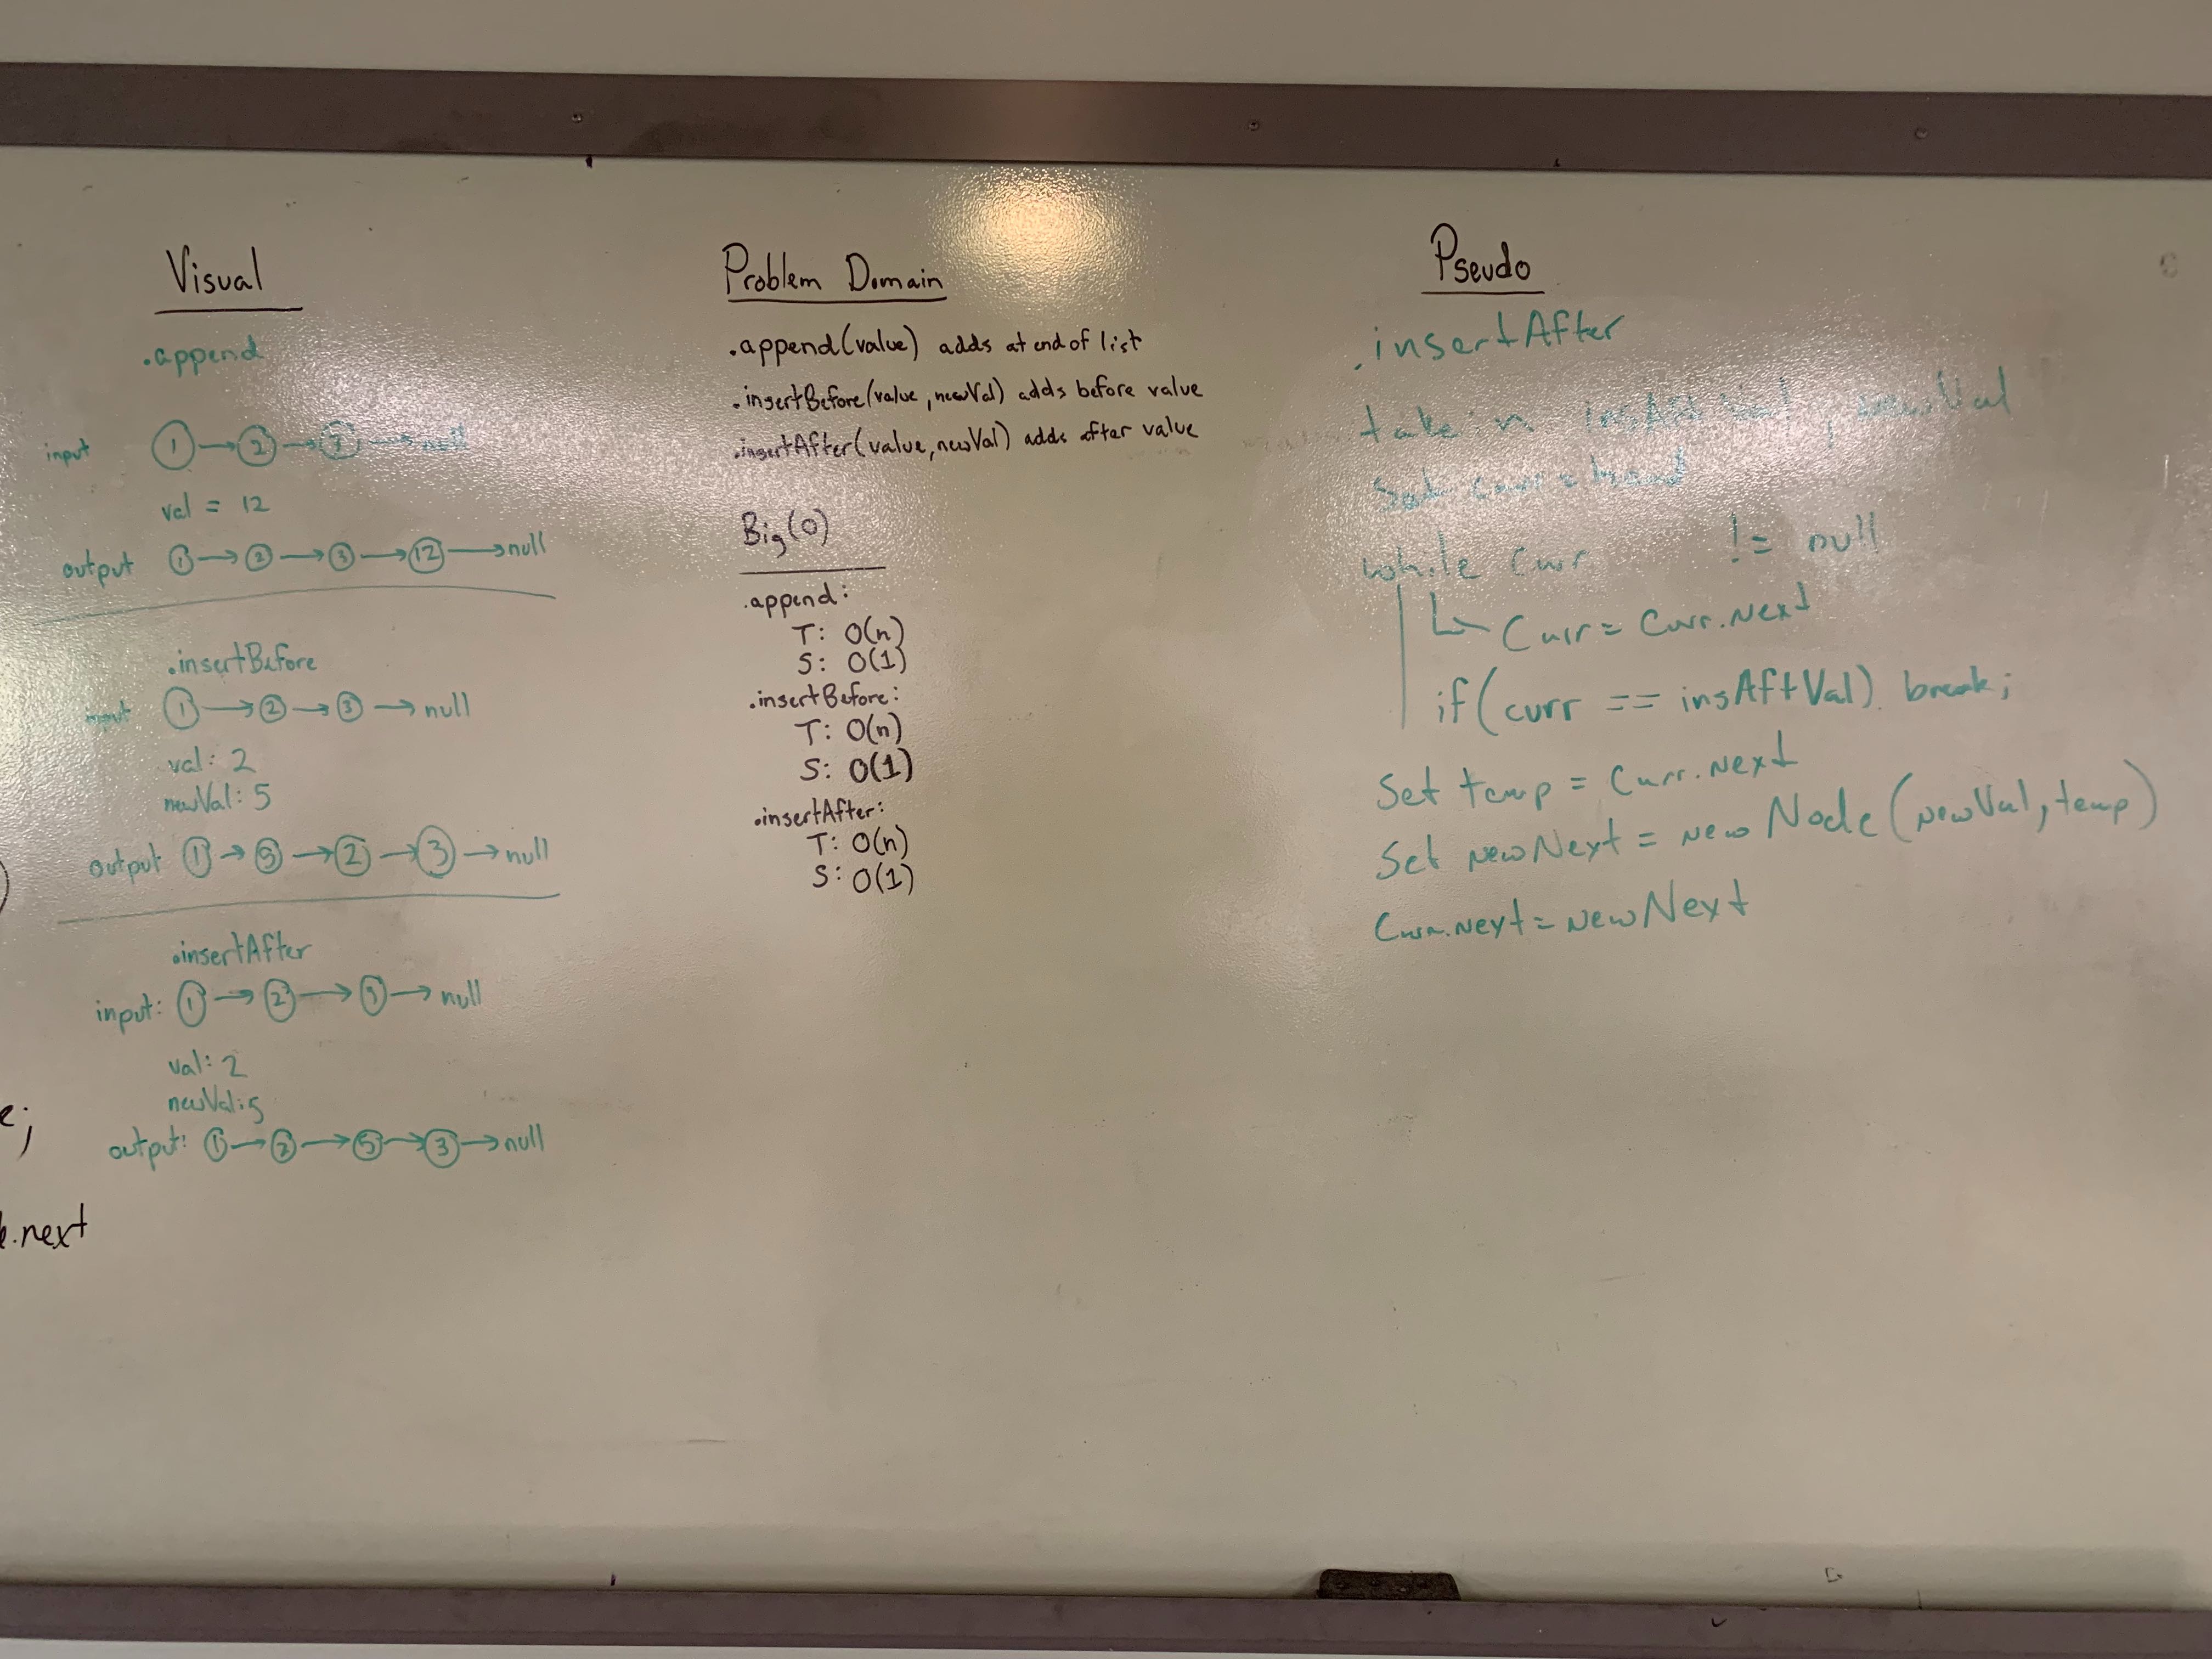 Visual
.append
input 1 → 2 → 3 → null
val = 12
output 1 → 2 → 3 → 12 → null
.insertBefore
input 1 → 2 → 3 → null
val: 2
newVal: 5
output 1 → 5 → 2 → 3 → null
.insertAfter
input: 1 → 2 → 3 → null
val: 2
newVal: 5
output: 1 → 2 → 5 → 3 → null
e;
.next
Problem Domain
.append(value) adds at end of list
.insertBefore(value, newVal) adds before value
.insertAfter(value, newVal) adds after value
Big(O)
.append:
T: O(n)
S: O(1)
.insertBefore:
T: O(n)
S: O(1)
.insertAfter:
T: O(n)
S: O(1)
Pseudo
.insertAfter
take in insAftVal, newVal
Set curr = head
while Curr != null
↳ Curr = Curr.Next
if(curr == insAftVal) break;
Set temp = Curr.Next
Set newNext = new Node(newVal, temp)
Curr.Next = newNext